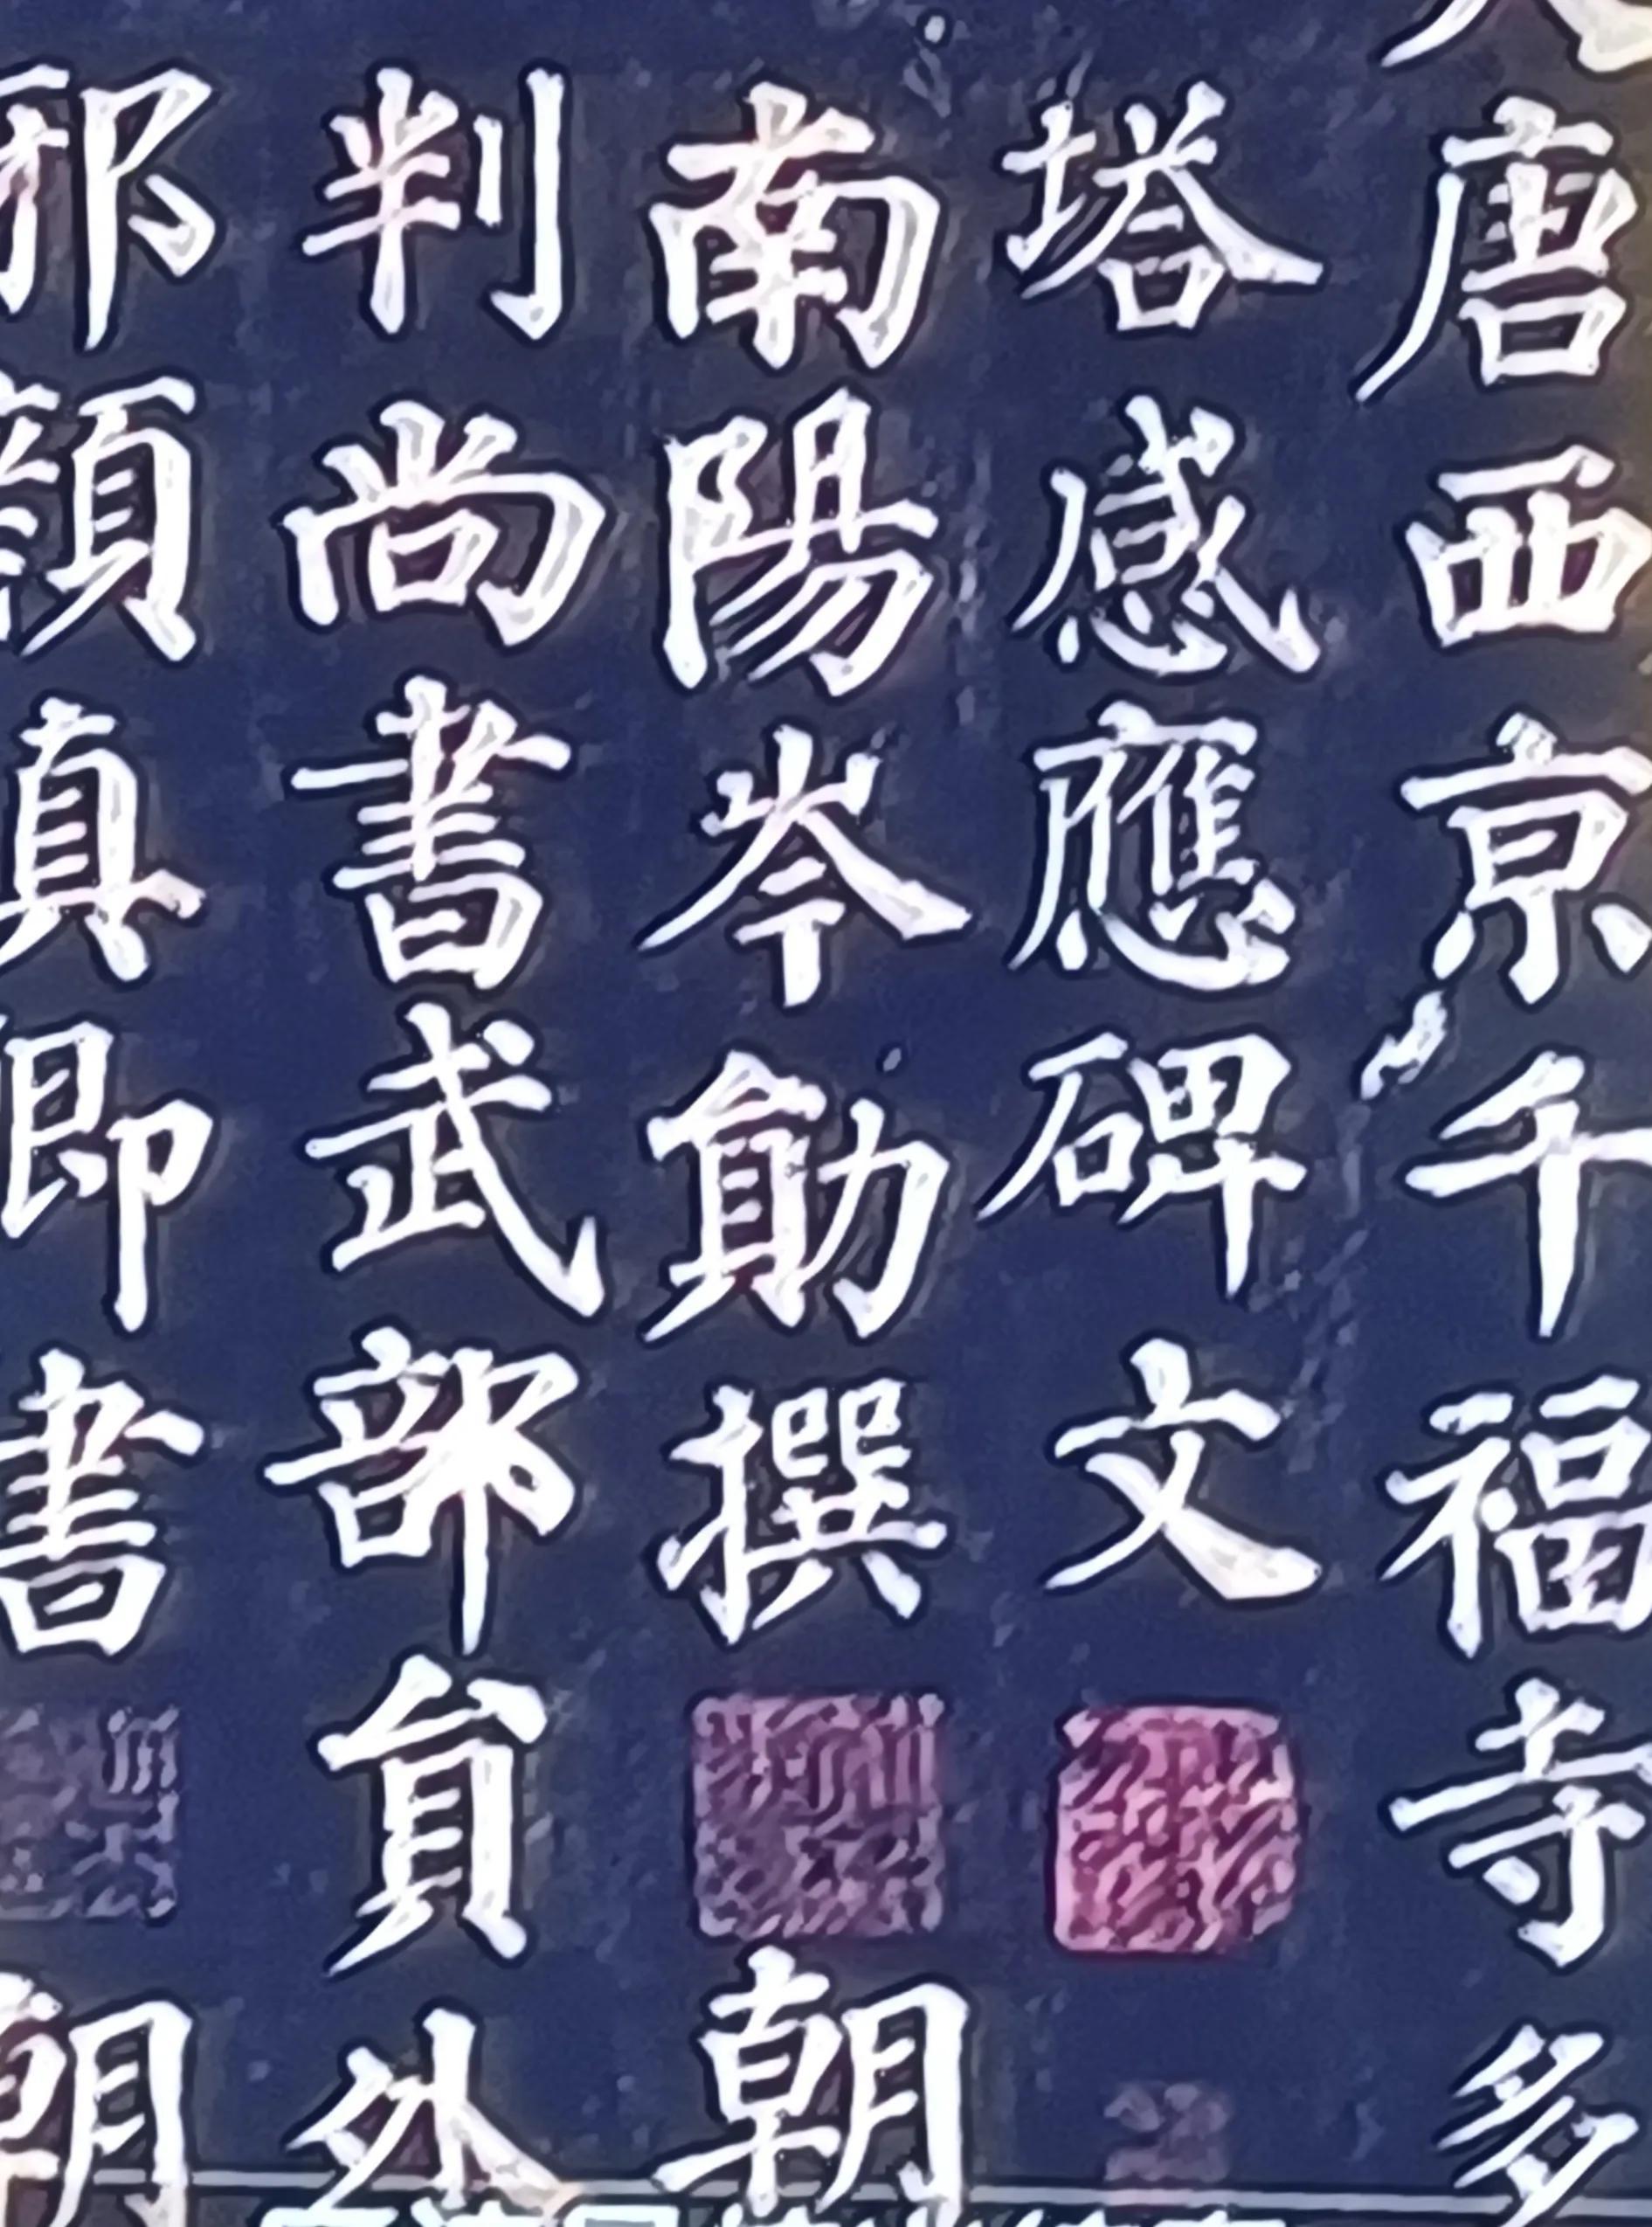 唐西京千福寺多
塔感應碑文
南陽岑勛撰 朝
判尚書武部員外
邪顏真卿書 朝